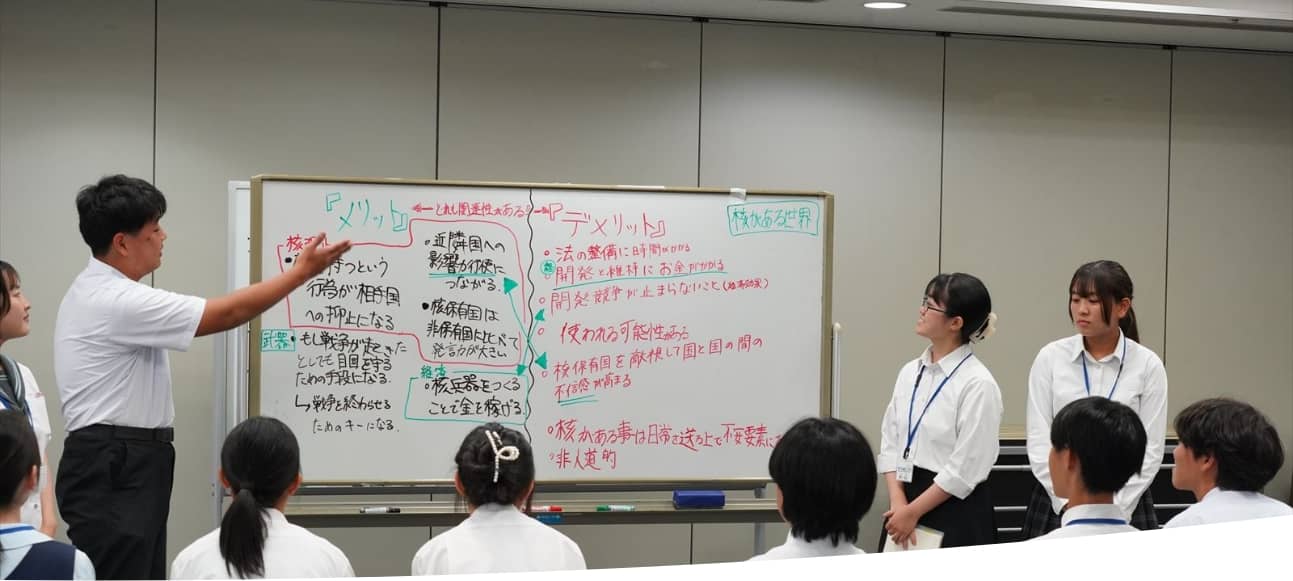 『メリット』
←どれも関連性がある!→
『デメリット』
核がある世界
持つという
行為が相手国
への抑止になる
武器
もし戦争が起きた
としても自国を守る
ための手段になる。
↳戦争を終わらせる
ためのキーになる。
○近隣国への
影響力行使に
つながる。
●核保有国は
非保有国と比べて
発言力が大きい
経済
○核兵器をつくる
ことで金を稼げる。
○法の整備に時間がかかる
開発と維持にお金がかかる
○開発競争が止まらないこと
○使われる可能性ある
○核保有国を敵視して国と国の間の
不信感が高まる
○核がある事は日常を送る上で不安要素に
○非人道的